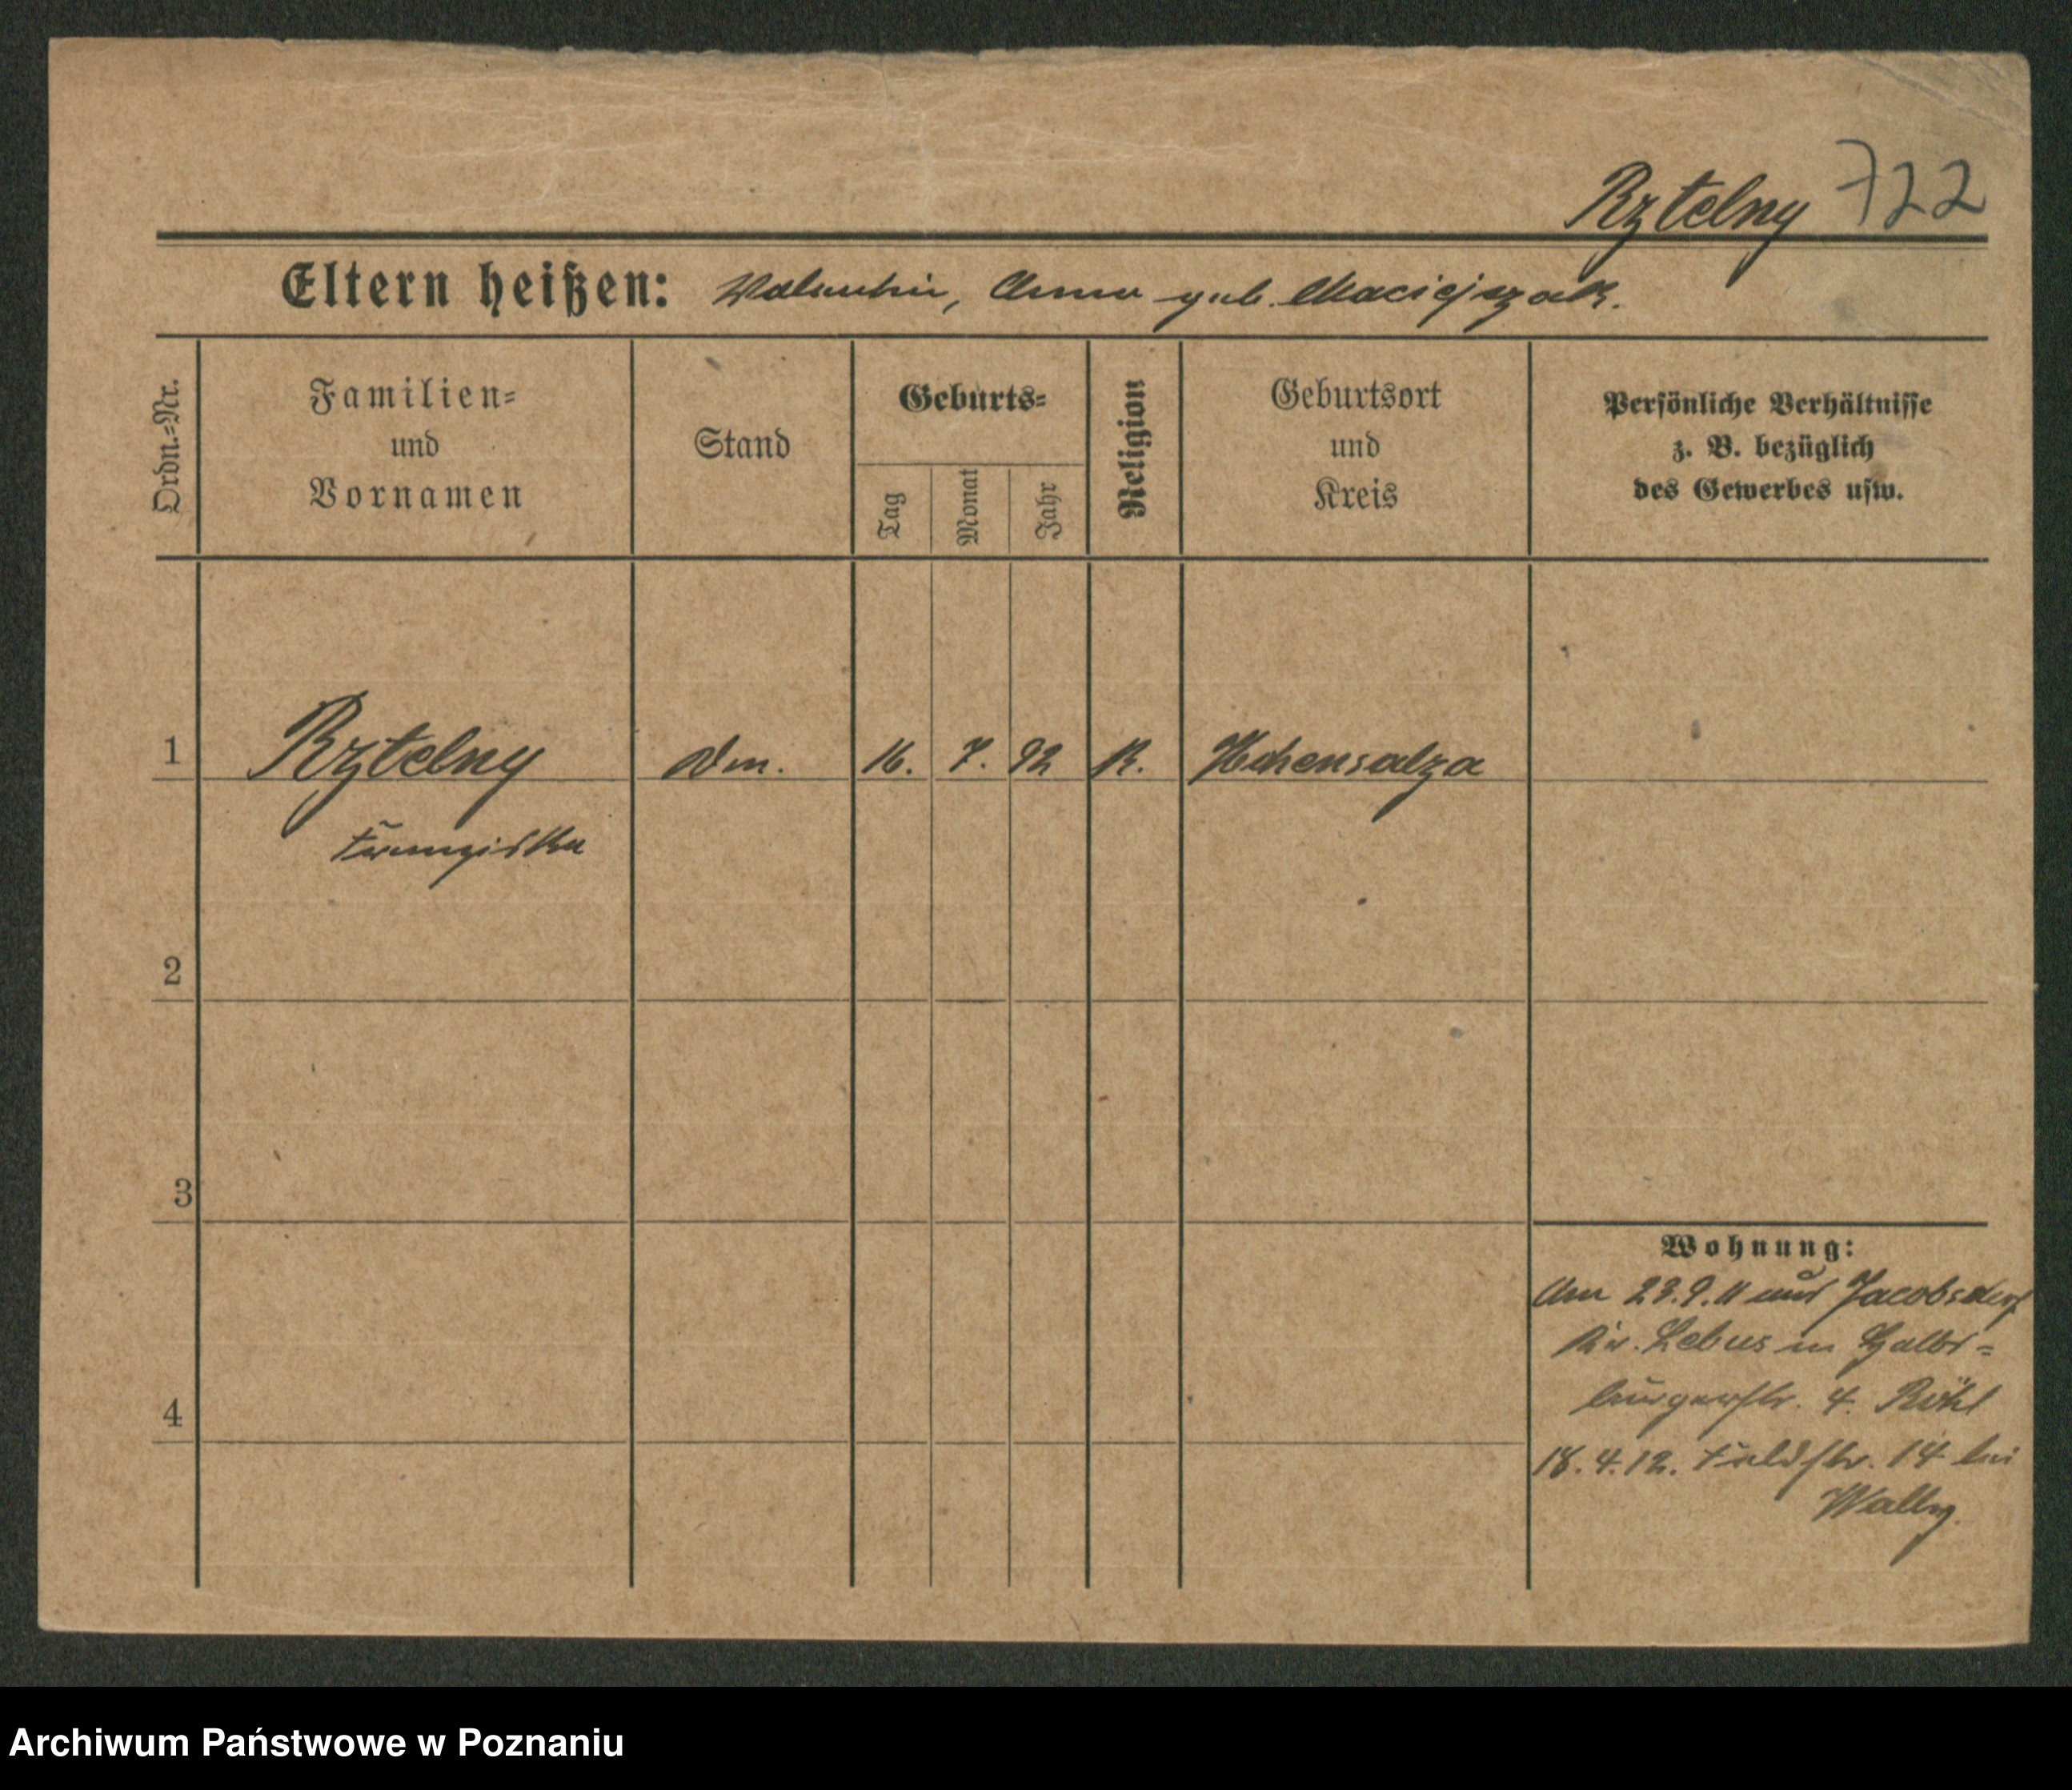 Rztelny 722
Eltern heißen: Valentin, Anna geb. Maciejszak.
Ordn.=Nr.
Familien=
und
Vornamen
Stand
Geburts=
Tag
Monat
Jahr
Religion
Geburtsort
und
Kreis
Persönliche Verhältnisse
z. B. bezüglich
des Gewerbes usw.
1 Rztelny Dm. 16. 7. 92 K. Hohensalza
Franziska
2
3
4
Wohnung:
Am 23.9.11 aus Jacobsdorf
Kr. Lebus in Halber=
4. Röhl
18.4.12. Feldstr. 14 bei
Archiwum Państwowe w Poznaniu